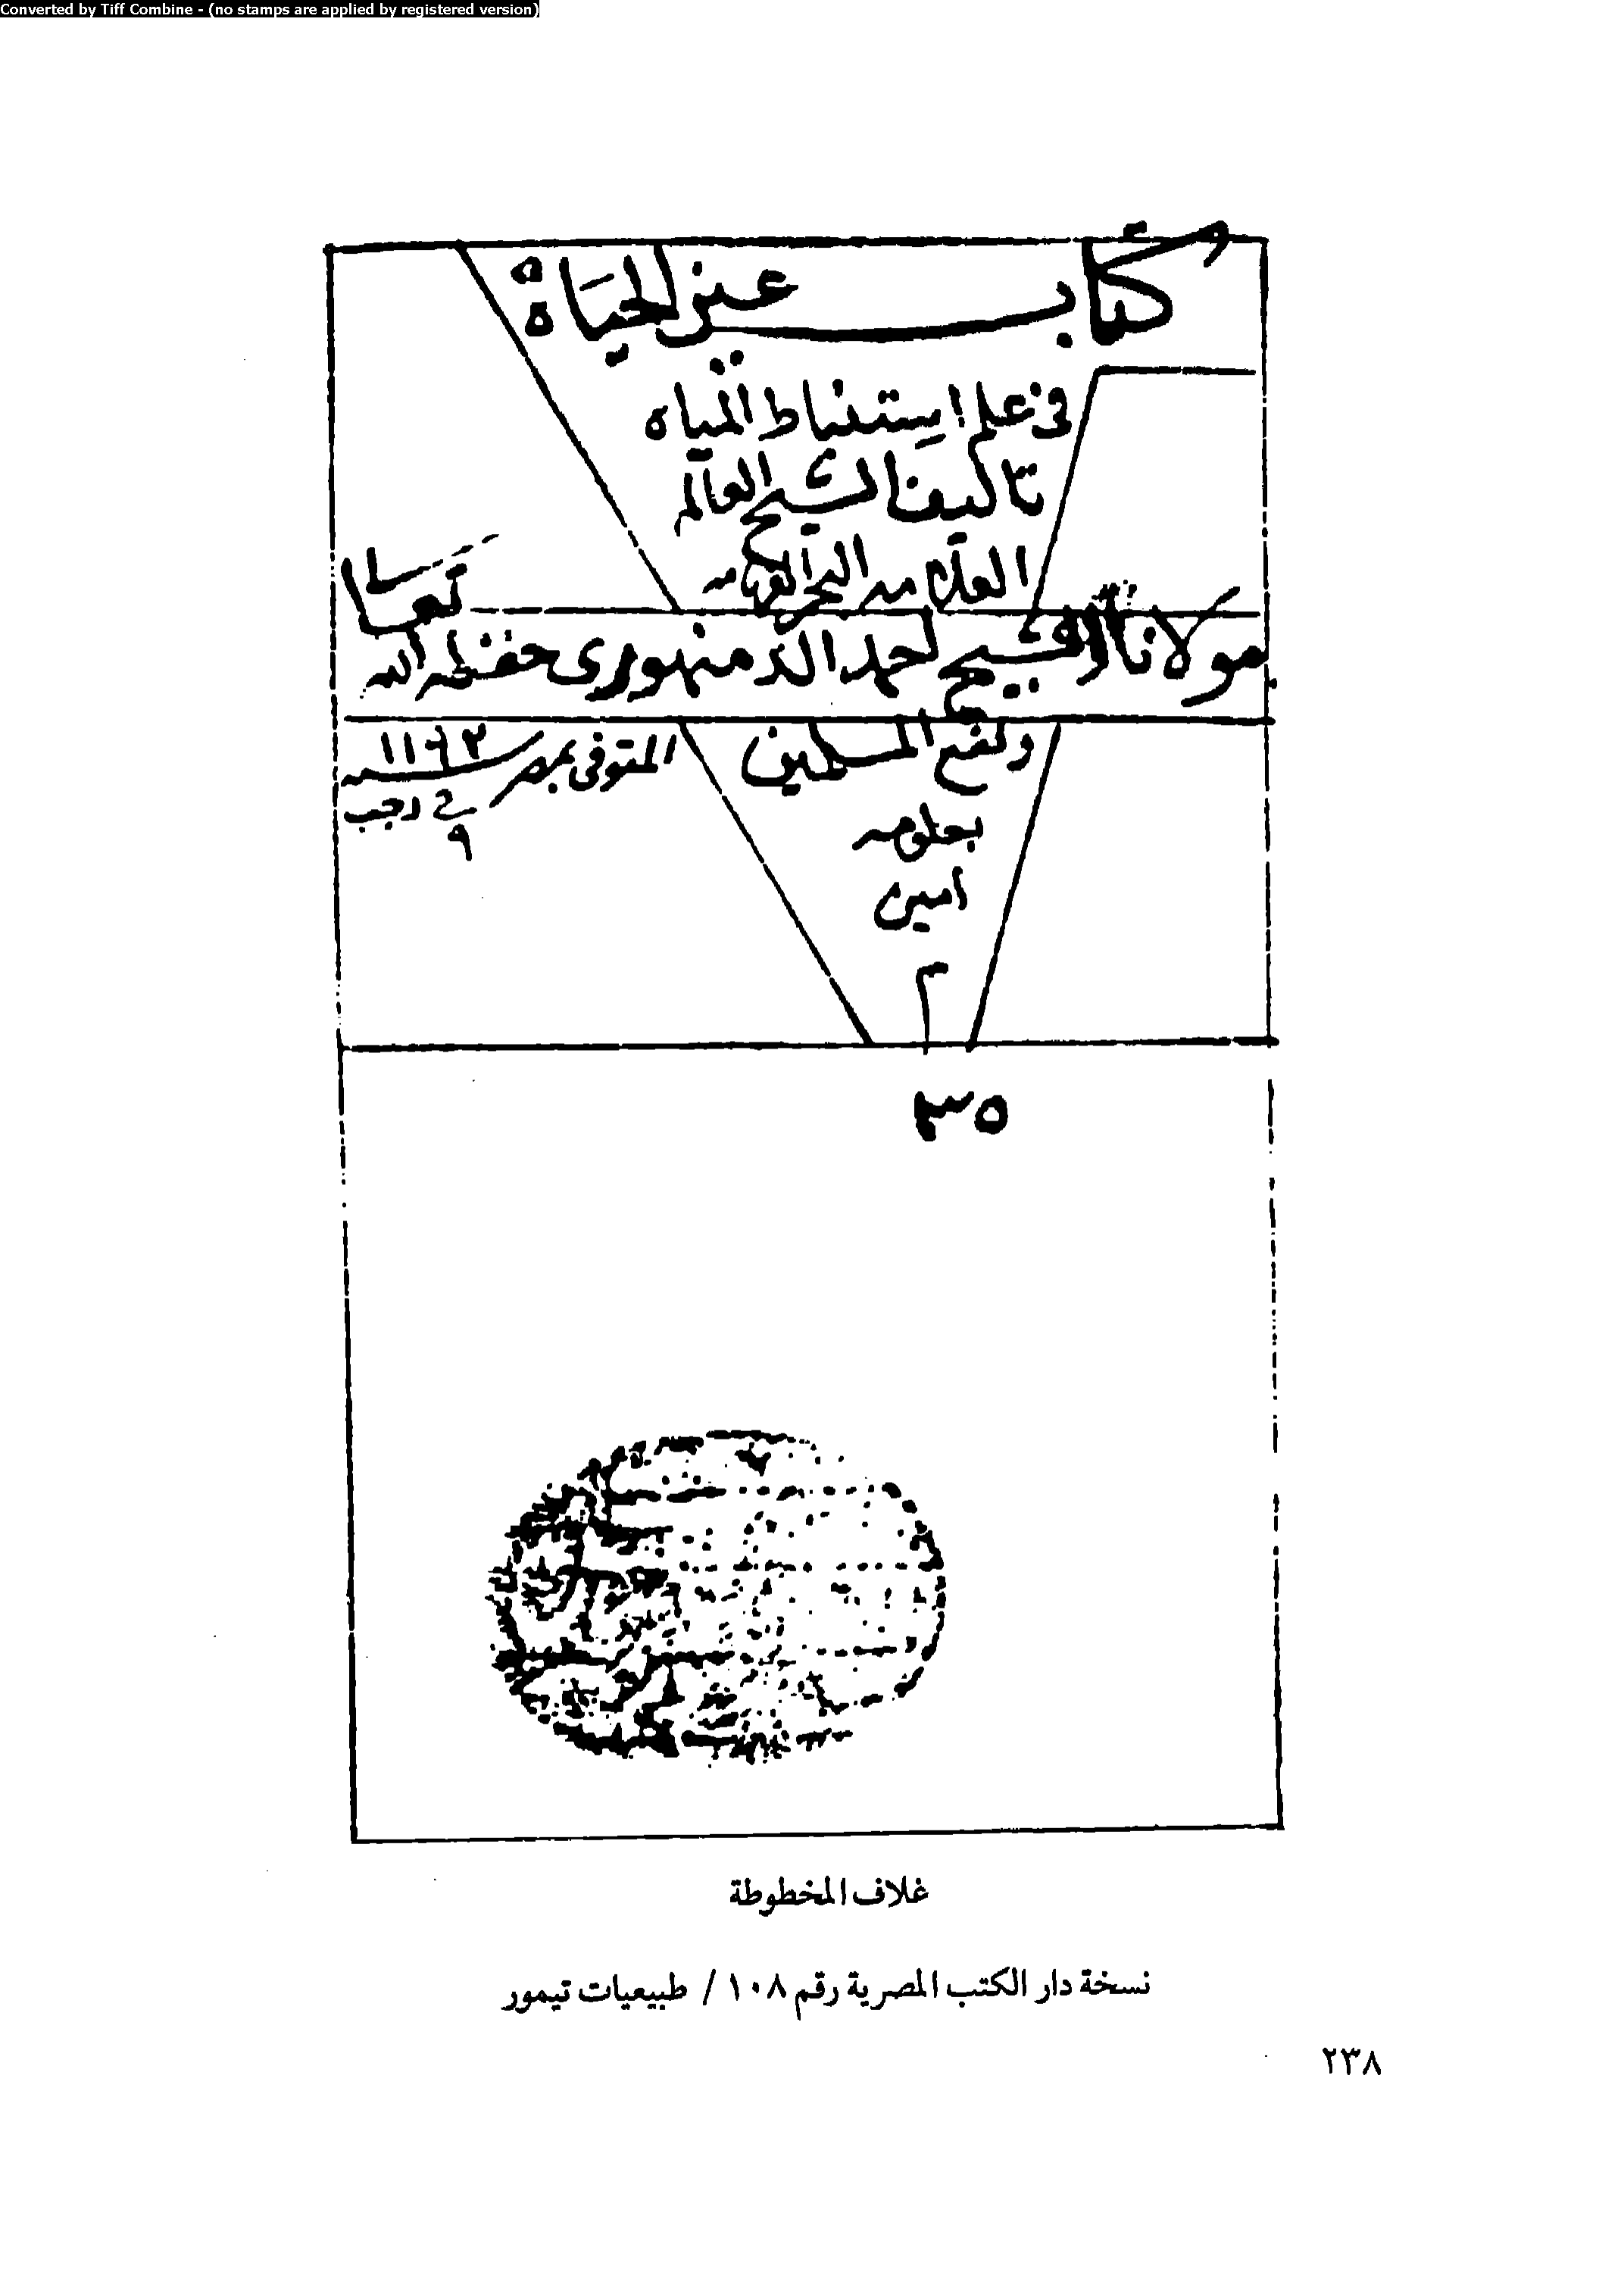 Converted by Tiff Combine - (no stamps are applied by registered version)
كتاب عين الحياة
في علم استنباط المياه
تاليف الشيخ العالم
العلامه البحر الفهامه
مولانا الشيخ احمد الدمنهوري حفظه الله تعالى
ونفع المسلمين
بعلومه
امين
المتوفى بمصر سنه ١١٩٢
في ٩ رجب
٣٥
غلاف المخطوطة
نسخة دار الكتب المصرية رقم ١٠٨ / طبيعيات تيمور
٢٣٨